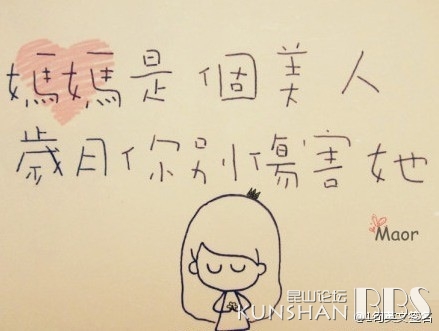 媽媽是個美人
歲月你別傷害她
Maor
昆山论坛
KUNSHAN BBS